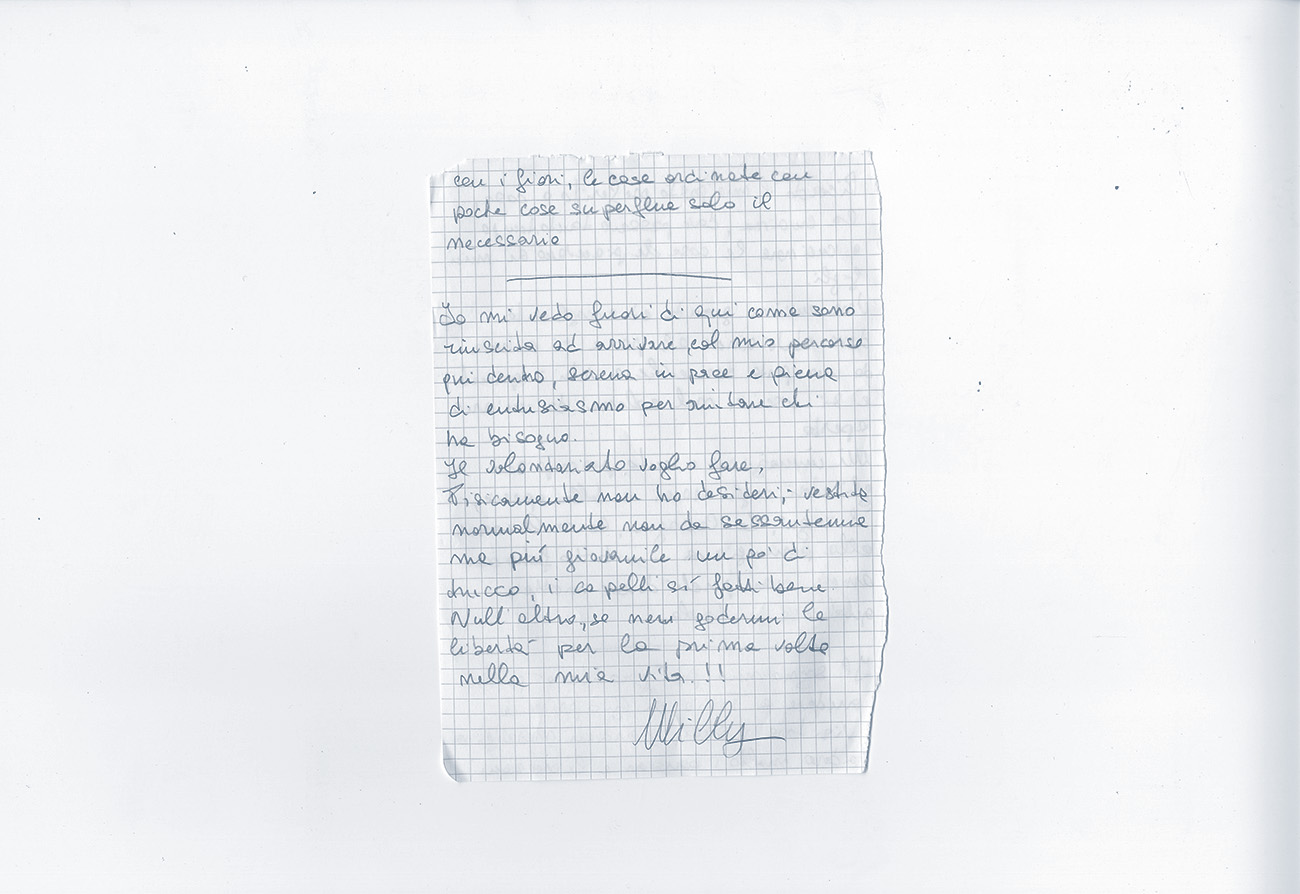 con i fiori, le case ordinate con
poche cose superflue solo il
necessario
Io mi vedo fuori di qui come sono
riuscita ad arrivare, col mio percorso
qui dentro, serena in pace e piena
di entusiasmo per aiutare chi
ha bisogno.
Il volontariato voglio fare,
Fisicamente non ho desideri,- vestita
normalmente non da sessantenne
ma più giovanile un po' di
trucco, i capelli sí fatti bene
Null'altro, se non godermi la
libertà per la prima volta
nella mia vita.!!
Milly